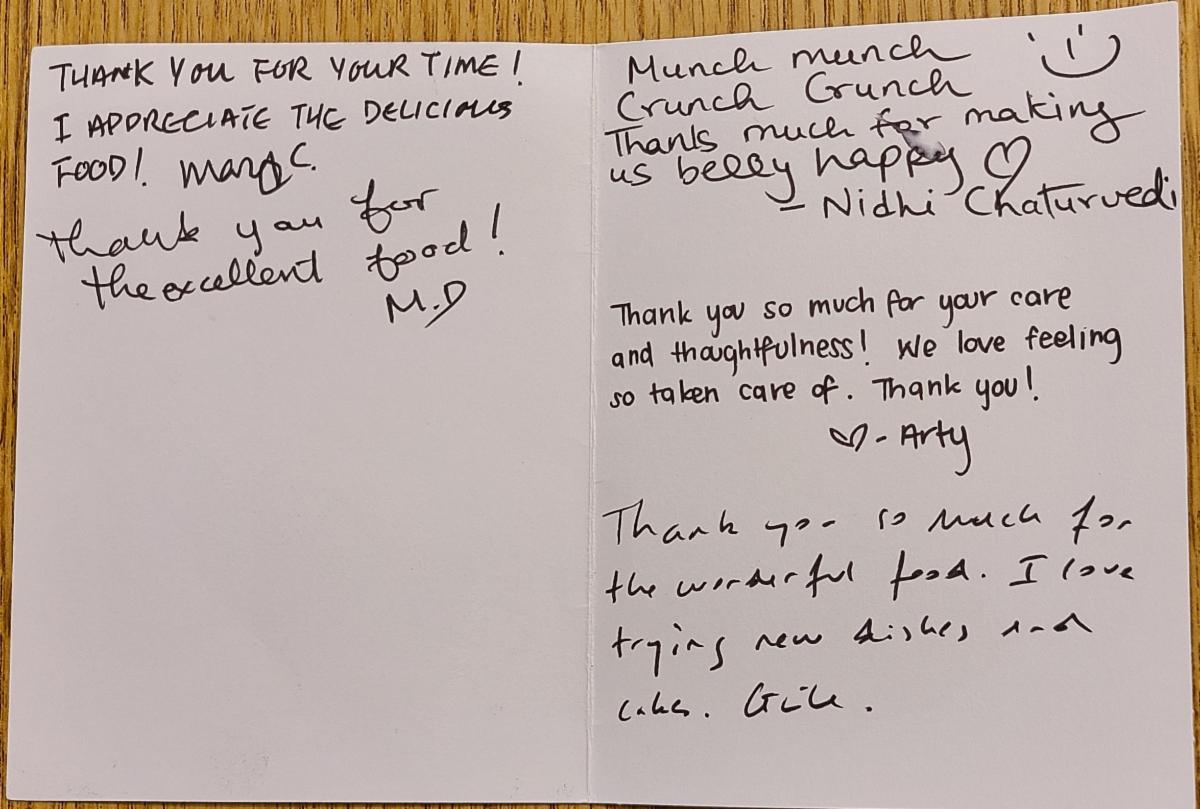 THANK YOU FOR YOUR TIME!
I APPRECIATE THE DELICIOUS
FOOD! C.
thank you for
the excellent food!
M.D
Munch munch
Crunch Crunch
Thanks much for making
us belly happy ♡
- Nidhi Chaturvedi
Thank you so much for your care
and thoughtfulness! We love feeling
so taken care of. Thank you!
♡ - Arty
Thank you so much for
the wonderful food. I love
trying new dishes and
cakes.